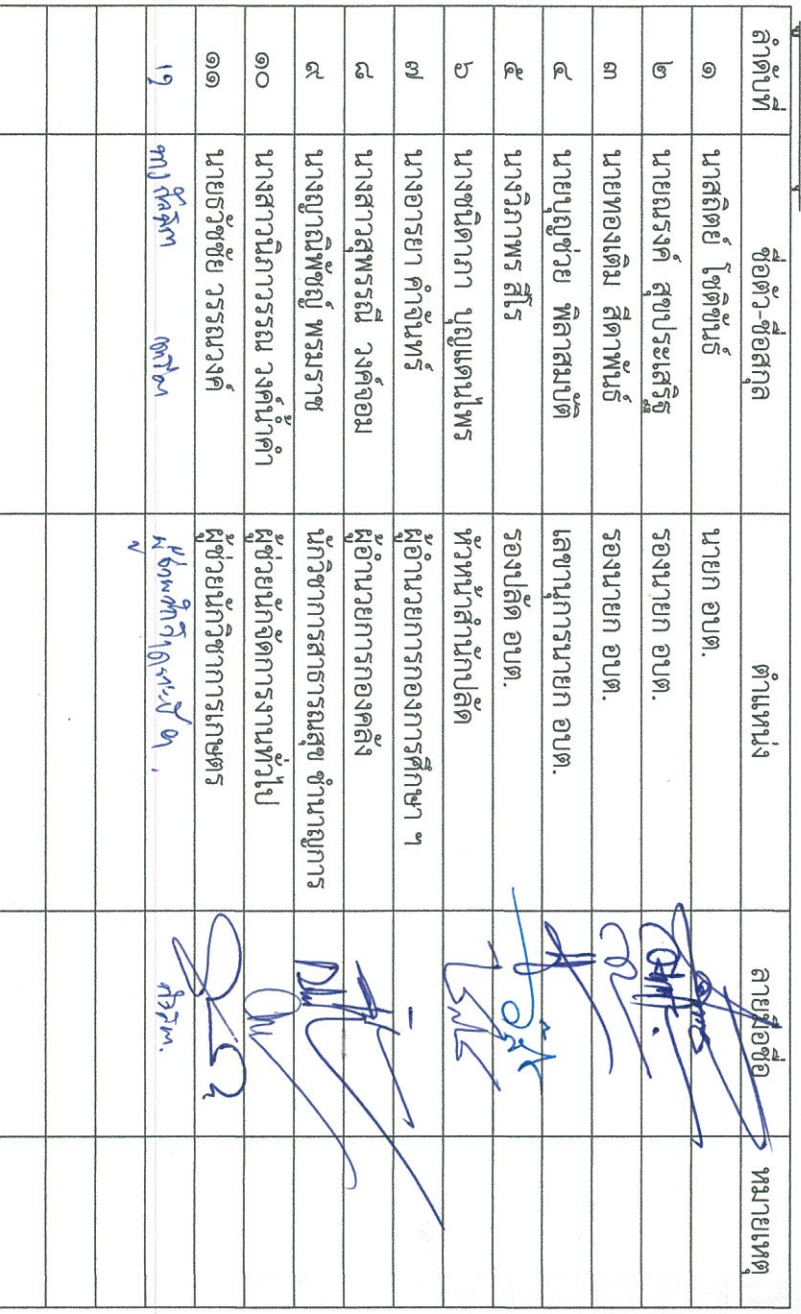 ลำดับที่ ชื่อตัว-ชื่อสกุล ตำแหน่ง ลายมือชื่อ หมายเหตุ
๑ นาสถิตย์ โชติขันธ์ นายก อบต.
๒ นายณรงค์ สุขประเสริฐ รองนายก อบต.
๓ นายทองเติม สีดาพันธ์ รองนายก อบต.
๔ นายบุญช่วย พิลาสมบัติ เลขานุการนายก อบต.
๕ นางวิภาพร สีโร รองปลัด อบต.
๖ นางชนิดาภา บุญแดนไพร หัวหน้าสำนักปลัด
๗ นางอารยา คำจันทร์ ผู้อำนวยการกองการศึกษา ฯ -
๘ นางสาวสุพรรณี วงค์จอม ผู้อำนวยการกองคลัง
๙ นางญาณิพัชญ์ พรมราช นักวิชาการสาธารณสุข ชำนาญการ
๑๐ นางสาวนิภาวรรณ วงค์น้ำคำ ผู้ช่วยนักจัดการงานทั่วไป
๑๑ นายธวัชชัย วรรณวงค์ ผู้ช่วยนักวิชาการเกษตร
๑๒